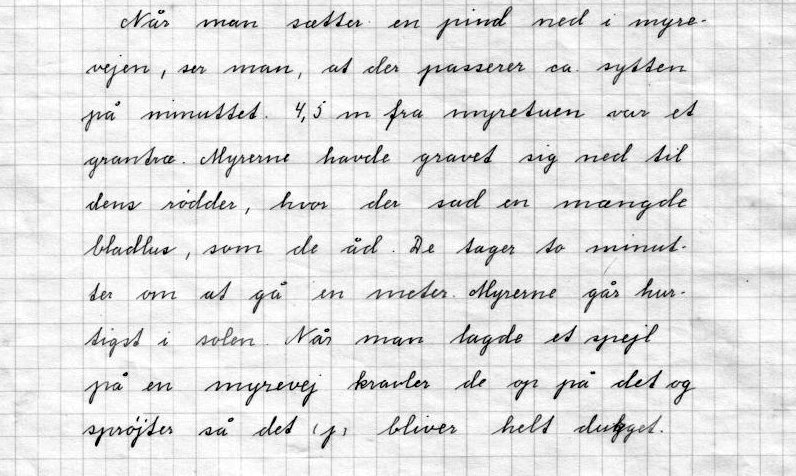 Når man sætter en pind ned i myre-
vejen, ser man, at der passerer ca. sytten
på minuttet. 4,5 m fra myretuen var et
grantræ. Myrerne havde gravet sig ned til
dens rödder, hvor der sad en mængde
bladlus, som de åd. De tager to minut-
ter om at gå en meter. Myrerne går hur-
tigst i solen. Når man lagde et spejl
på en myrevej kravler de op på det og
sprøjter så det (p) bliver helt dugget.